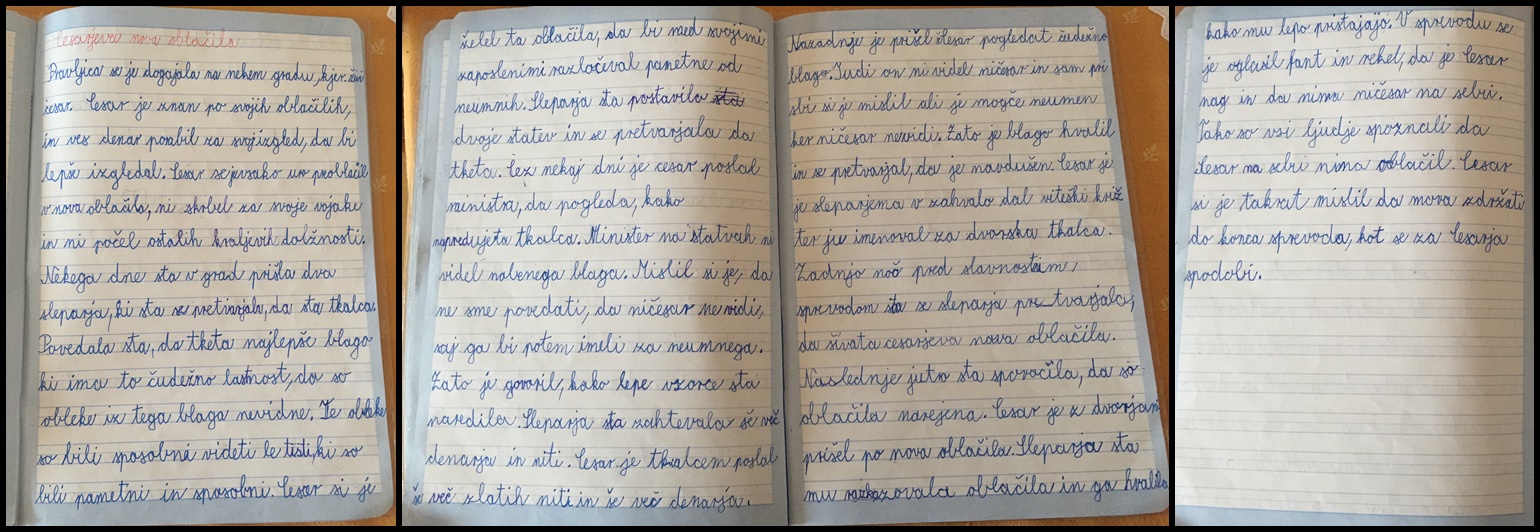 Cesarjeva nova oblačila
Pravljica se je dogajala na nekem gradu, kjer živi
cesar. Cesar je znan po svojih oblačilih,
in ves denar porabil za svoj izgled, da bi
lepše izgledal. Cesar se je vsako uro preoblačil
v nova oblačila, ni skrbel za svoje vojake
in ni počel ostalih kraljevih dolžnosti.
Nekega dne sta v grad prišla dva
sleparja, ki sta se pretvarjala, da sta tkalca.
Povedala sta, da tketa najlepše blago
ki ima to čudežno lastnost, da so
obleke iz tega blaga nevidne. Te obleke
so bili sposobni videti le tisti, ki so
bili pametni in sposobni. Cesar si je
želel ta oblačila, da bi med svojimi
zaposlenimi razločeval pametne od
neumnih. Sleparja sta postavila sta
dvoje statev in se pretvarjala da
tketa. Čez nekaj dni je cesar poslal
ministra, da pogleda, kako
napredujeta tkalca. Minister na statvah ni
videl nobenega blaga. Mislil si je, da
ne sme povedati, da ničesar ne vidi,
saj ga bi potem imeli za neumnega.
Zato je govoril, kako lepe vzorce sta
naredila. Sleparja sta zahtevala še več
denarja in niti. Cesar je tkalcem poslal
še več zlatih niti in še več denarja.
Nazadnje je prišel Cesar pogledat čudežno
blago. Tudi on ni videl ničesar in sam pri
sebi si je mislil ali je mogoče neumen
ker ničesar nevidi. Zato je blago hvalil
in se pretvarjal, da je navdušen. Cesar je
je sleparjema v zahvalo dal viteški križ
ter ju imenoval za dvorska tkalca.
Zadnjo noč pred slavnostnim,
sprevodom sta se sleparja pretvarjala,
da šivata cesarjeva nova oblačila.
Naslednje jutro sta sporočila, da so
oblačila narejena. Cesar je z dvorjani
prišel po nova oblačila. Sleparja sta
mu razkazovala oblačila in ga hvalila
kako mu lepo pristajajo. V sprevodu se
je oglasil fant in rekel, da je Cesar
nag in da nima ničesar na sebi.
Tako so vsi ljudje spoznali da
Cesar na sebi nima oblačil. Cesar
si je takrat mislil da mora zdržati
do konca sprevoda, kot se za Cesarja
spodobi.